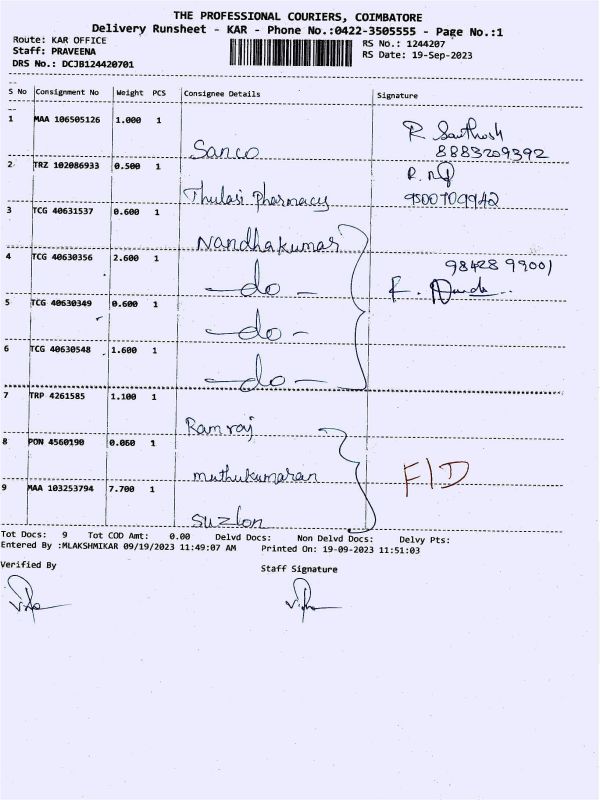 THE PROFESSIONAL COURIERS, COIMBATORE
Delivery Runsheet - KAR - Phone No.:0422-3505555 - Page No.:1
Route: KAR OFFICE RS No.: 1244207
Staff: PRAVEENA RS Date: 19-Sep-2023
DRS No.: DCJB124420701
S No Consignment No Weight PCS Consignee Details Signature
1 MAA 106505126 1.000 1 R Santhosh
Sanco 8883209392
2 TRZ 102086933 0.500 1 R.
Thulasi Pharmacy 9500709942
3 TCG 40631537 0.600 1
Nandhakumar
4 TCG 40630356 2.600 1 98428 99001
- do -
5 TCG 40630349 0.600 1
- do -
6 TCG 40630548 1.600 1
- do -
7 TRP 4261585 1.100 1
Ramraj
8 PON 4560190 0.060 1 F/D
muthukumaran
9 MAA 103253794 7.700 1
Suzlon
Tot Docs: 9 Tot COD Amt: 0.00 Delvd Docs: Non Delvd Docs: Delvy Pts:
Entered By :MLAKSHMIKAR 09/19/2023 11:49:07 AM Printed On: 19-09-2023 11:51:03
Verified By Staff Signature